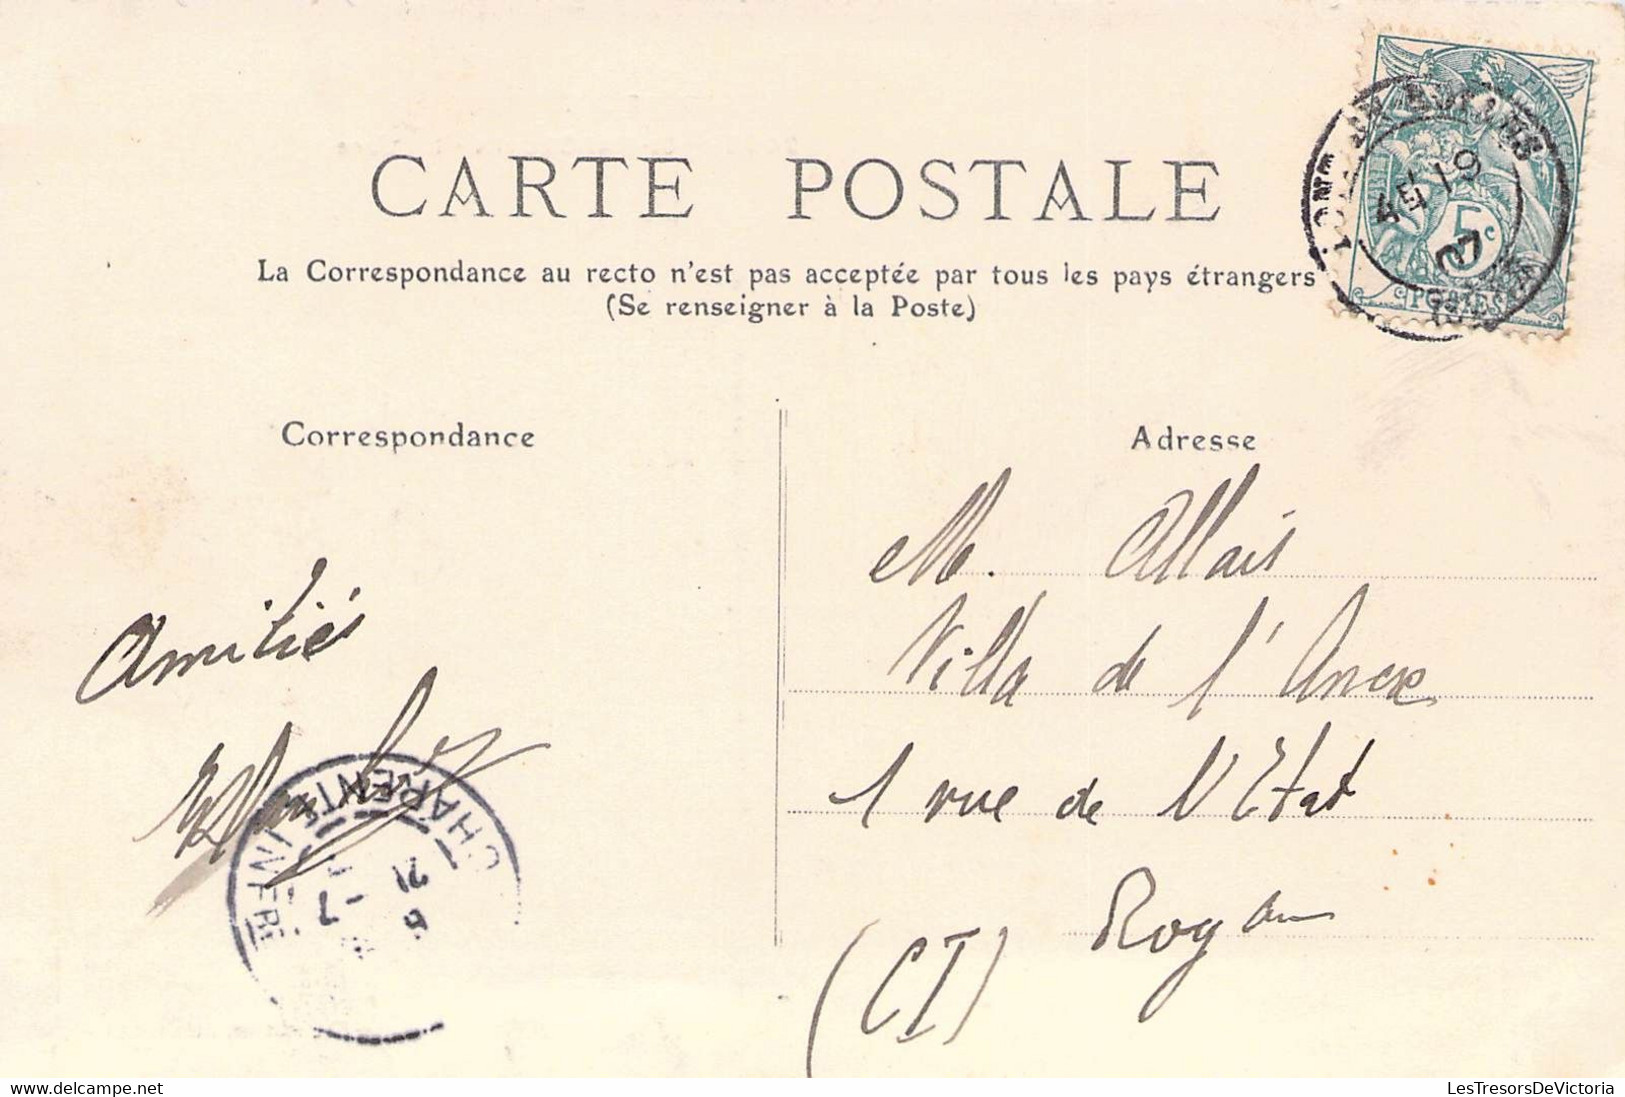 CARTE POSTALE
La Correspondance au recto n'est pas acceptée par tous les pays étrangers
(Se renseigner à la Poste)
5c
POSTES
19
07
Correspondance
Adresse
Amitiés
M. Allais
Villa de l'Ancre
1 rue de l'Etat
Royan
(CI)
CHARENTE INFRE
21
6
-7
LesTresorsDeVictoria